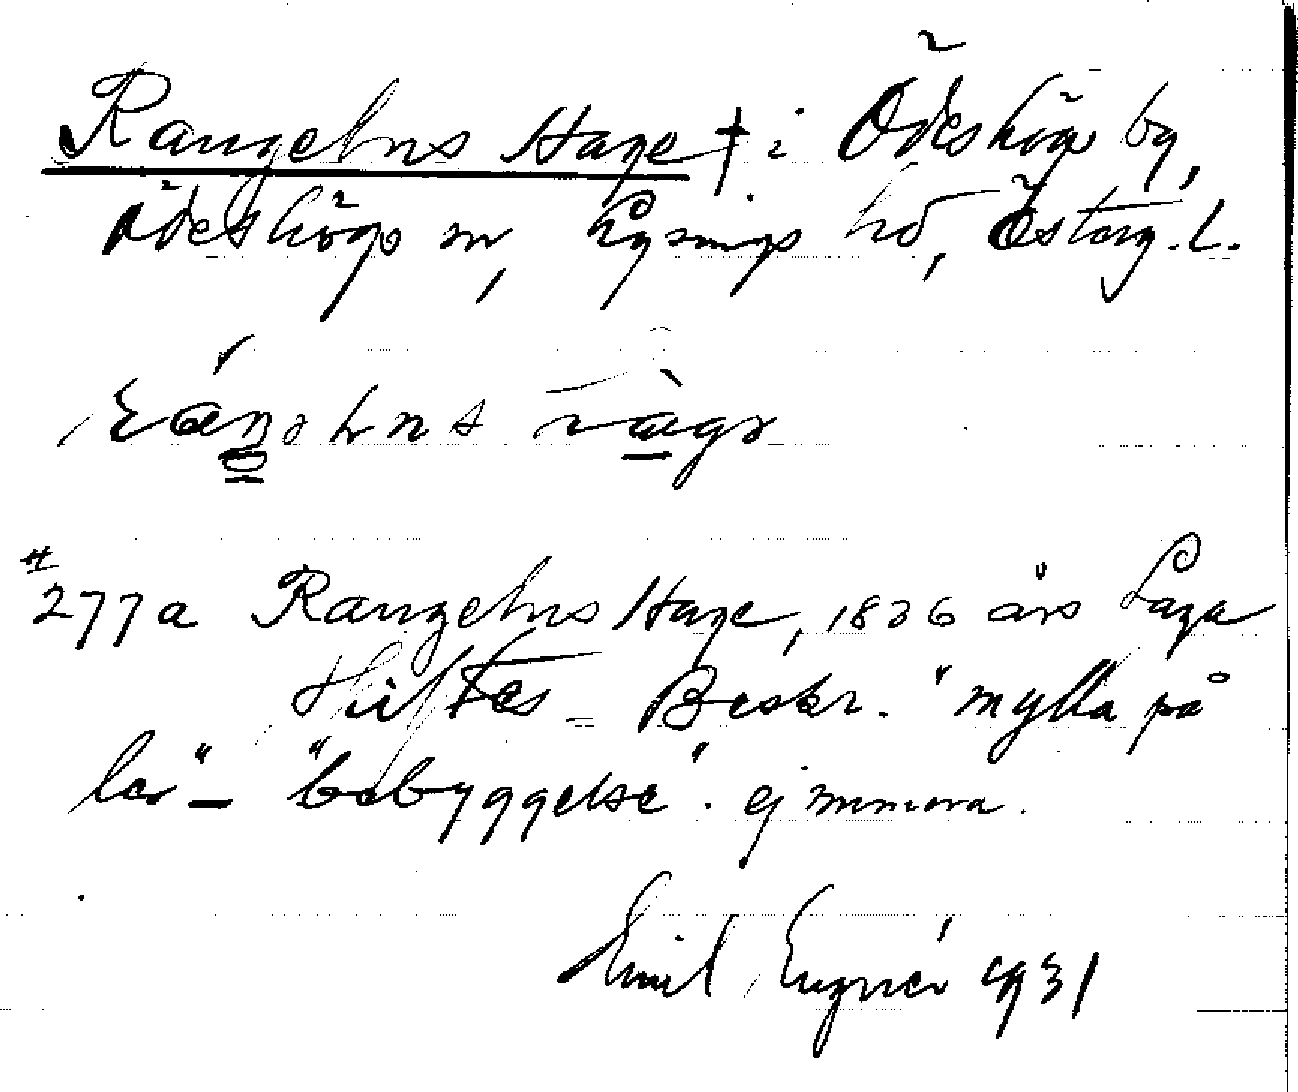 Rangelns Hage † i Ödeshög by,
Ödeshögs sn, Lysings hd, Österg. l.
277a Rangelns Hage, 1836 års Laga
Skiftes - Beskr. "mylla på
ler" – "bebyggelse". ej minnena.
Emil 1931